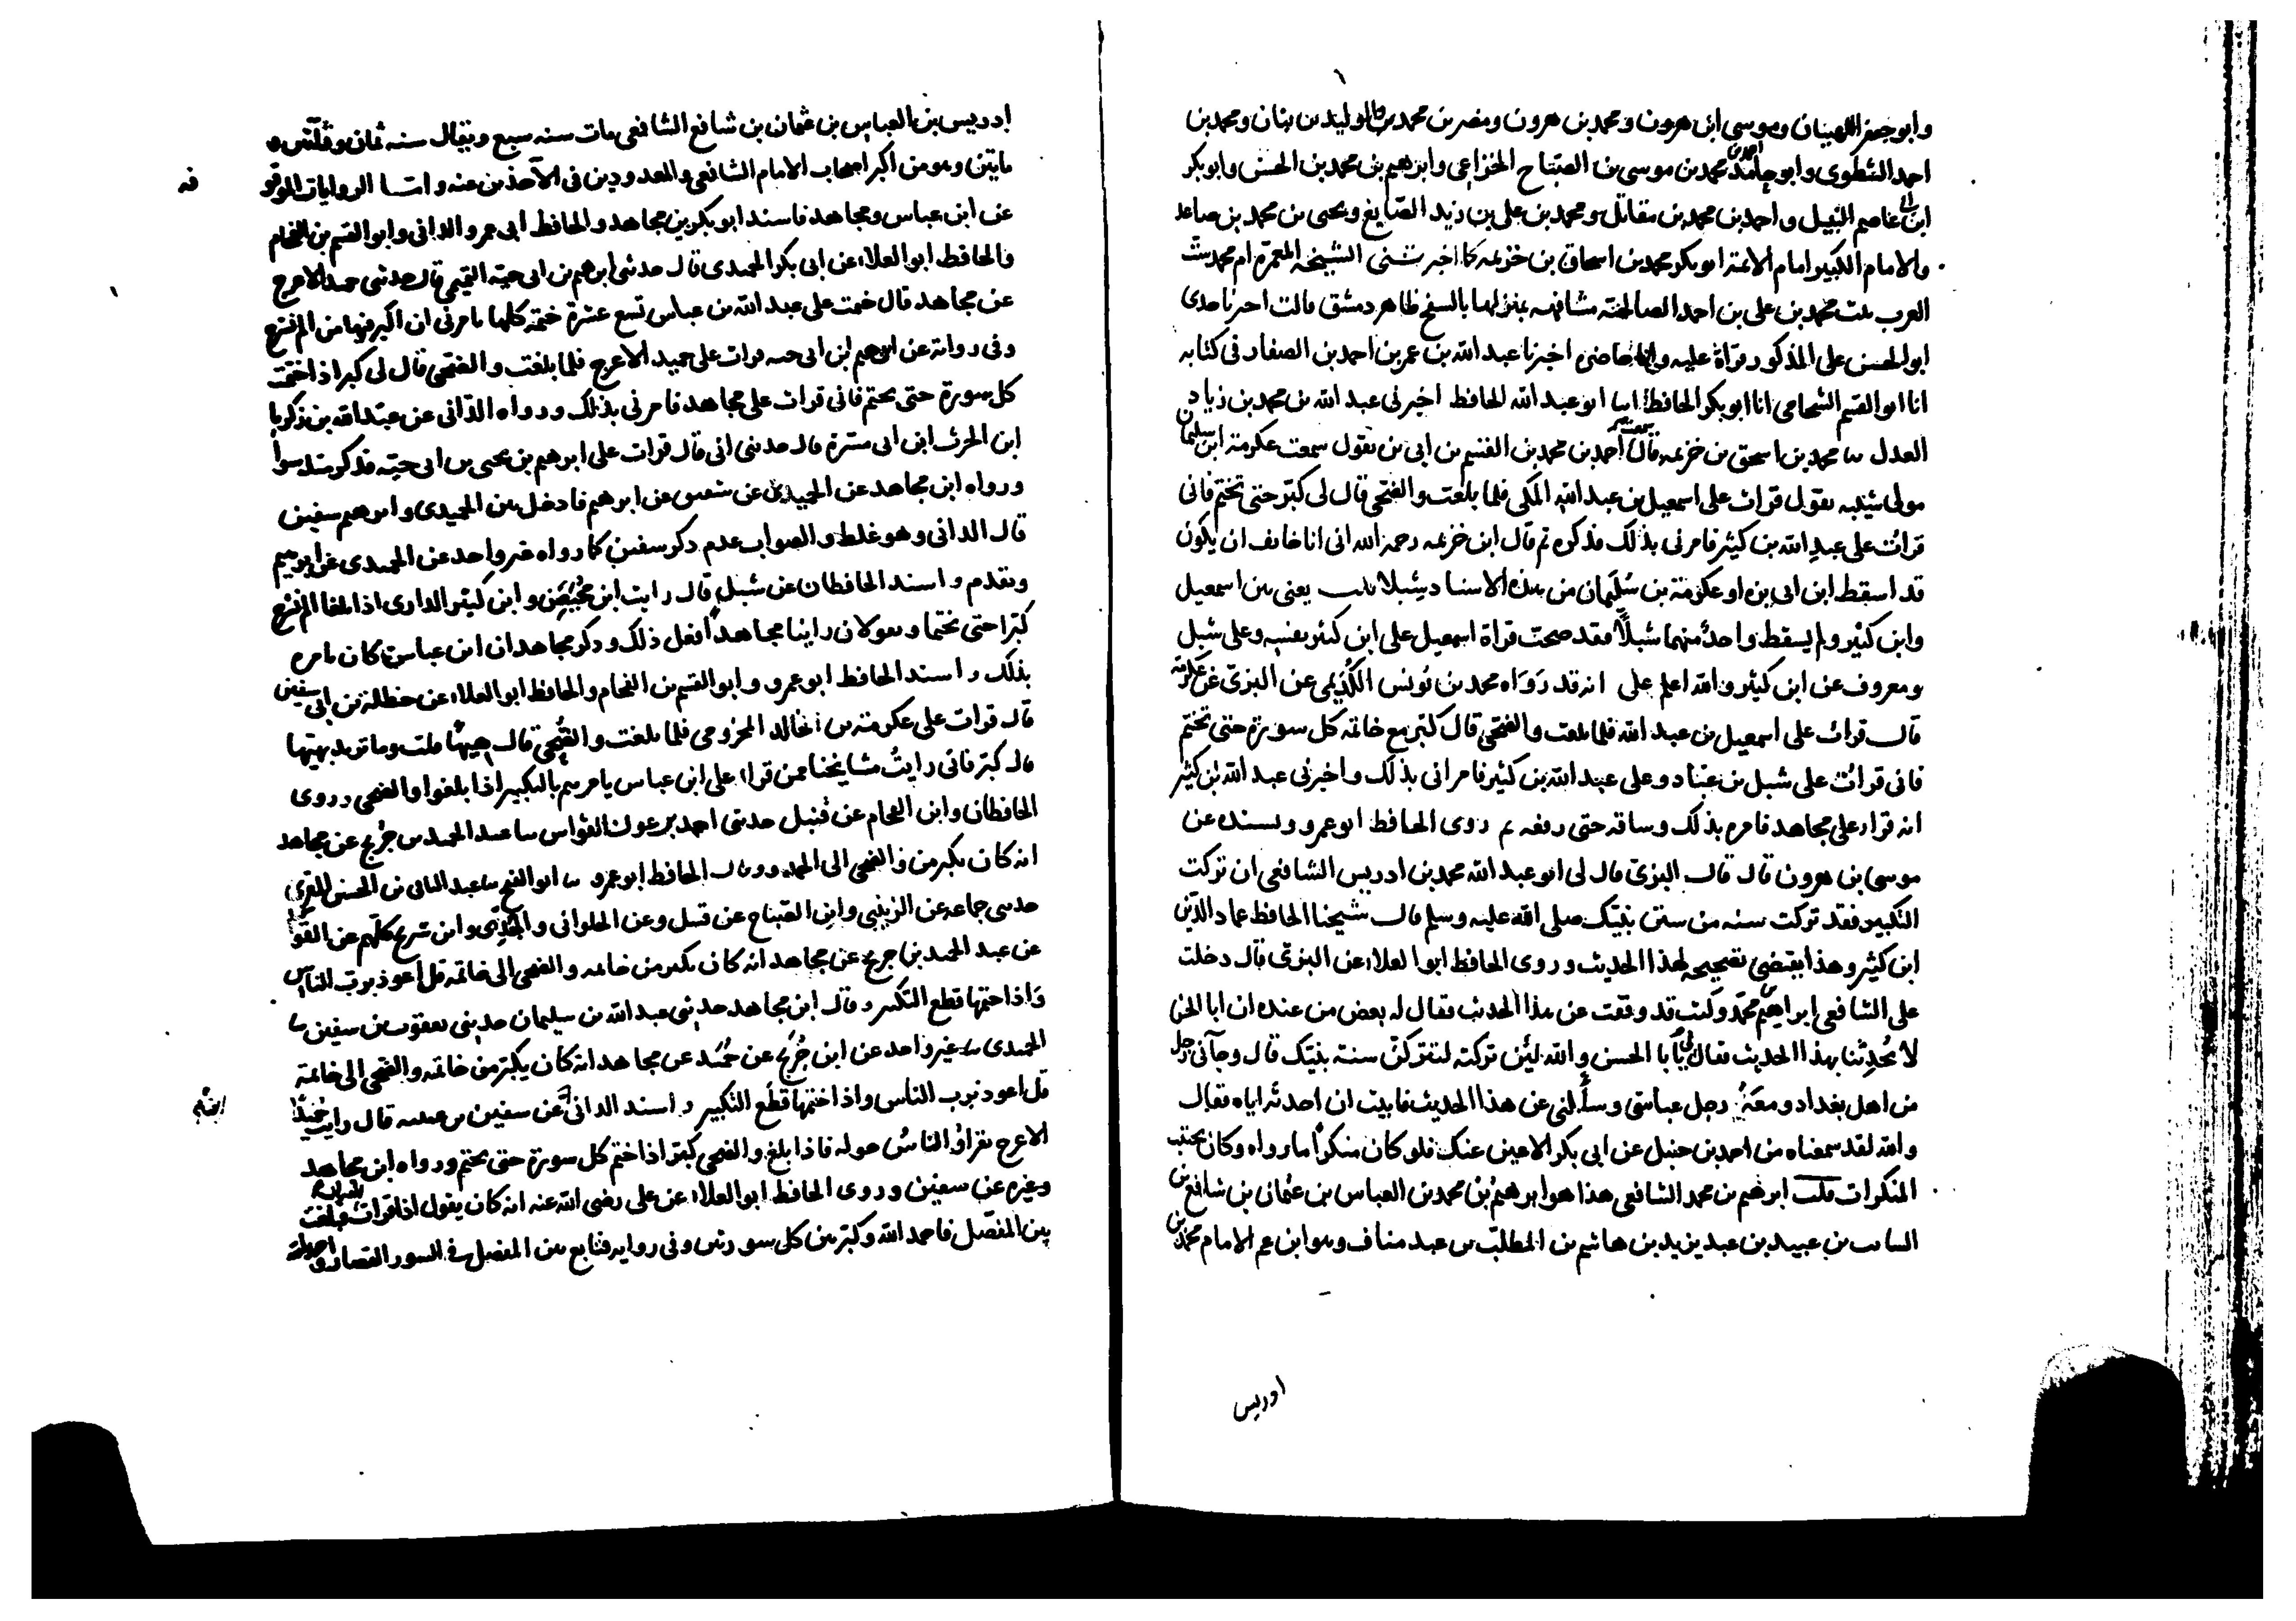 وابو جعفر اللهبيان وموسى ابن هرون ومحمد بن هرون ومضر بن محمد والوليد بن بنان ومحمد بن
احمد الشطوى وابو حامد احمد بن محمد بن موسى بن الصباح الخزاعى وابرهيم بن محمد بن الحسن وابو بكر
ابن ابى عاصم النبيل واحمد بن محمد بن مقاتل ومحمد بن على بن زيد الصايغ ويحيى بن محمد بن صاعد
والامام الكبير امام الائمة ابو بكر محمد بن اسحاق بن خزيمه كما اخبرتنى الشيخة المعمرة ام محمد ست
العرب بنت محمد بن على بن احمد الصالحية مشافهه بمنزلها بالسفح ظاهر دمشق قالت اخبرنا جدى
ابو الحسن على المذكور قراة عليه وانا حاضرة اخبرنا عبد الله بن عمر بن احمد بن الصفار فى كتابه
انا ابو القسم الشحامى انا ابو بكر الحافظ انبا ابو عبد الله الحافظ اخبرنى عبد الله بن محمد بن زياد
العدل ثنا محمد بن اسحق بن خزيمه قال سمعت احمد بن محمد بن القسم بن ابى بزه يقول سمعت عكرمة ابن سليمان
مولى شيبه يقول قرات على اسمعيل بن عبد الله المكى فلما بلغت والضحى قال لى كبر حتى تختم فانى
قرات على عبد الله بن كثير فامرنى بذلك فذكره ثم قال ابن خزيمه رحمه الله انى انا خايف ان يكون
قد اسقط ابن ابى بزه او عكرمة بن سليمان من هذه الاسناد شبلا قلت يعنى بين اسمعيل
وابن كثير ولم يسقط واحد منهما شبلا فقد صحت قراة اسمعيل على ابن كثير بفنسه وعلى شبل
ومعروف عن ابن كثير والله اعلم على انه قد رواه محمد بن يونس الكديمى عن البزى عن عكرمة
قال قرات على اسمعيل بن عبد الله فلما بلغت والضحى قال كبر مع خاتمه كل سورة حتى تختم
فانى قرات على شبل بن عباد وعلى عبد الله بن كثير فامرانى بذلك واخبرنى عبد الله بن كثير
انه قرا على مجاهد فامره بذلك وساقه حتى رفعه ثم روى الحافظ ابو عمرو وبسنده عن
موسى بن هرون قال قال البزى قال لى ابو عبد الله محمد بن ادريس الشافعى ان تركت
التكبير فقد تركت سنه من سنن نبيك صلى الله عليه وسلم قال شيخنا الحافظ عماد الدين
ابن كثير وهذا يقتضى تصحيحه لهذا الحديث وروى الحافظ ابو العلاء عن البزى قال دخلت
على الشافعى ابراهيم بن محمد وكنت قد وقفت عن هذا الحديث فقال له بعض من عنده ان ابا الحسن
لا يحدثنا بهذا الحديث فقال لى يا با الحسن والله لئن تركته لتتركن سنة نبيك قال وجآنى رجل
من اهل بغداد ومعه رجل عباسى وسألنى عن هذا الحديث فابيت ان احدثه اياه فقال
والله لقد سمعناه من احمد بن حنبل عن ابى بكر الاعين عنك فلو كان منكرا ما رواه وكان يجتنب
المنكرات قلت ابرهيم بن محمد الشافعى هذا هو ابرهيم بن محمد بن العباس بن عثمان بن شافع بن
السايب بن عبيد بن عبد يزيد بن هاشم بن المطلب بن عبد مناف وهو ابن عم الامام محمد بن
ادريس
ادريس بن العباس بن عثمان بن شافع الشافعى مات سنه سبع ويقال سنه ثمان وثلثين و
مايتين وهو من اكبر اصحاب الامام الشافعى والمعدودين فى الآخذين عنه واما الروايات الموقو
فه
عن ابن عباس ومجاهد فاسند ابو بكر بن مجاهد والحافظ ابى عمرو الدانى وابو القسم بن الفحام
والحافظ ابو العلاء عن ابى بكر الحميدى قال حدثنى ابرهيم بن ابى حيه التميمى قال حدثنى حميد الاعرج
عن مجاهد قال ختمت على عبد الله بن عباس تسع عشرة ختمة كلها يامرنى ان اكبر فيها من الم نشرح
وفى رواية عن ابرهيم ابن ابى حيه قرات على حميد الاعرج فلما بلغت والضحى قال لى كبر اذا ختمت
كل سورة حتى تختم فانى قرات على مجاهد فامرنى بذلك ورواه الدانى عن عبد الله بن زكريا
ابن الحرث ابن ابى مسرة قال حدثنى ابى قال قرات على ابرهيم بن يحيى بن ابى حيه فذكر مثله سوا
ورواه ابن مجاهد عن الحميدى عن سفين عن ابرهيم فادخل بين الحميدى وابرهيم سفين
قال الدانى وهو غلط والصواب عدم ذكر سفين كما رواه غير واحد عن الحميدى عن ابرهيم
وتقدم واسند الحافظان عن شبل قال رايت ابن محيصن وابن كثير الدارى اذا بلغا الم نشرح
كبرا حتى يختما ويقولان راينا مجاهدا فعل ذلك وذكر مجاهد ان ابن عباس كان يامره
بذلك واسند الحافظ ابو عمرو وابو القسم بن الفحام والحافظ ابو العلاء عن حنظلة بن ابى سفين
قال قرات على عكرمة بن خالد المخزومى فلما بلغت والضحى قال هيها قلت وما تريد بهيها
قال كبر فانى رايت مشايخنا ممن قرا على ابن عباس يامرهم بالتكبير اذا بلغوا والضحى وروى
الحافظان وابن الفحام عن قنبل حدثنى احمد بن عون القواس ثنا عبد الحميد بن جريج عن مجاهد
انه كان يكبر من والضحى الى الحمد وقال الحافظ ابو عمرو ثنا ابو الفتح ثنا عبد الباقى بن الحسن المقرى
حدثنى جماعة عن الزينبى وابن الصباح عن قنبل وعن الحلوانى والجدى وابن شريح كلهم عن القوا
عن عبد الحميد بن جريج عن مجاهد انه كان يكبر من خاتمه والضحى الى خاتمه قل اعوذ برب الناس
واذا ختمها قطع التكبير وقال ابن مجاهد حدثنى عبد الله بن سليمان حدثنى يعقوب بن سفين ثنا
الحميدى ثنا غير واحد عن ابن جريج عن حميد عن مجاهد انه كان يكبر من خاتمه والضحى الى خاتمة
قل اعوذ برب الناس واذا ختمها قطع التكبير واسند الدانى عن سفين بن عيينه قال رايت حميدا
الاعرج يقرا والناس حوله فاذا بلغ والضحى كبر اذا ختم كل سورة حتى يختم ورواه ابن مجاهد
وغيره عن سفين وروى الحافظ ابو العلاء عن على رضى الله عنه انه كان يقول اذا قرات القران فبلغت
بين المفصل فاحمد الله وكبر بين كل سورتين وفى رواية فتابع بين المفصل فى السور القصار و